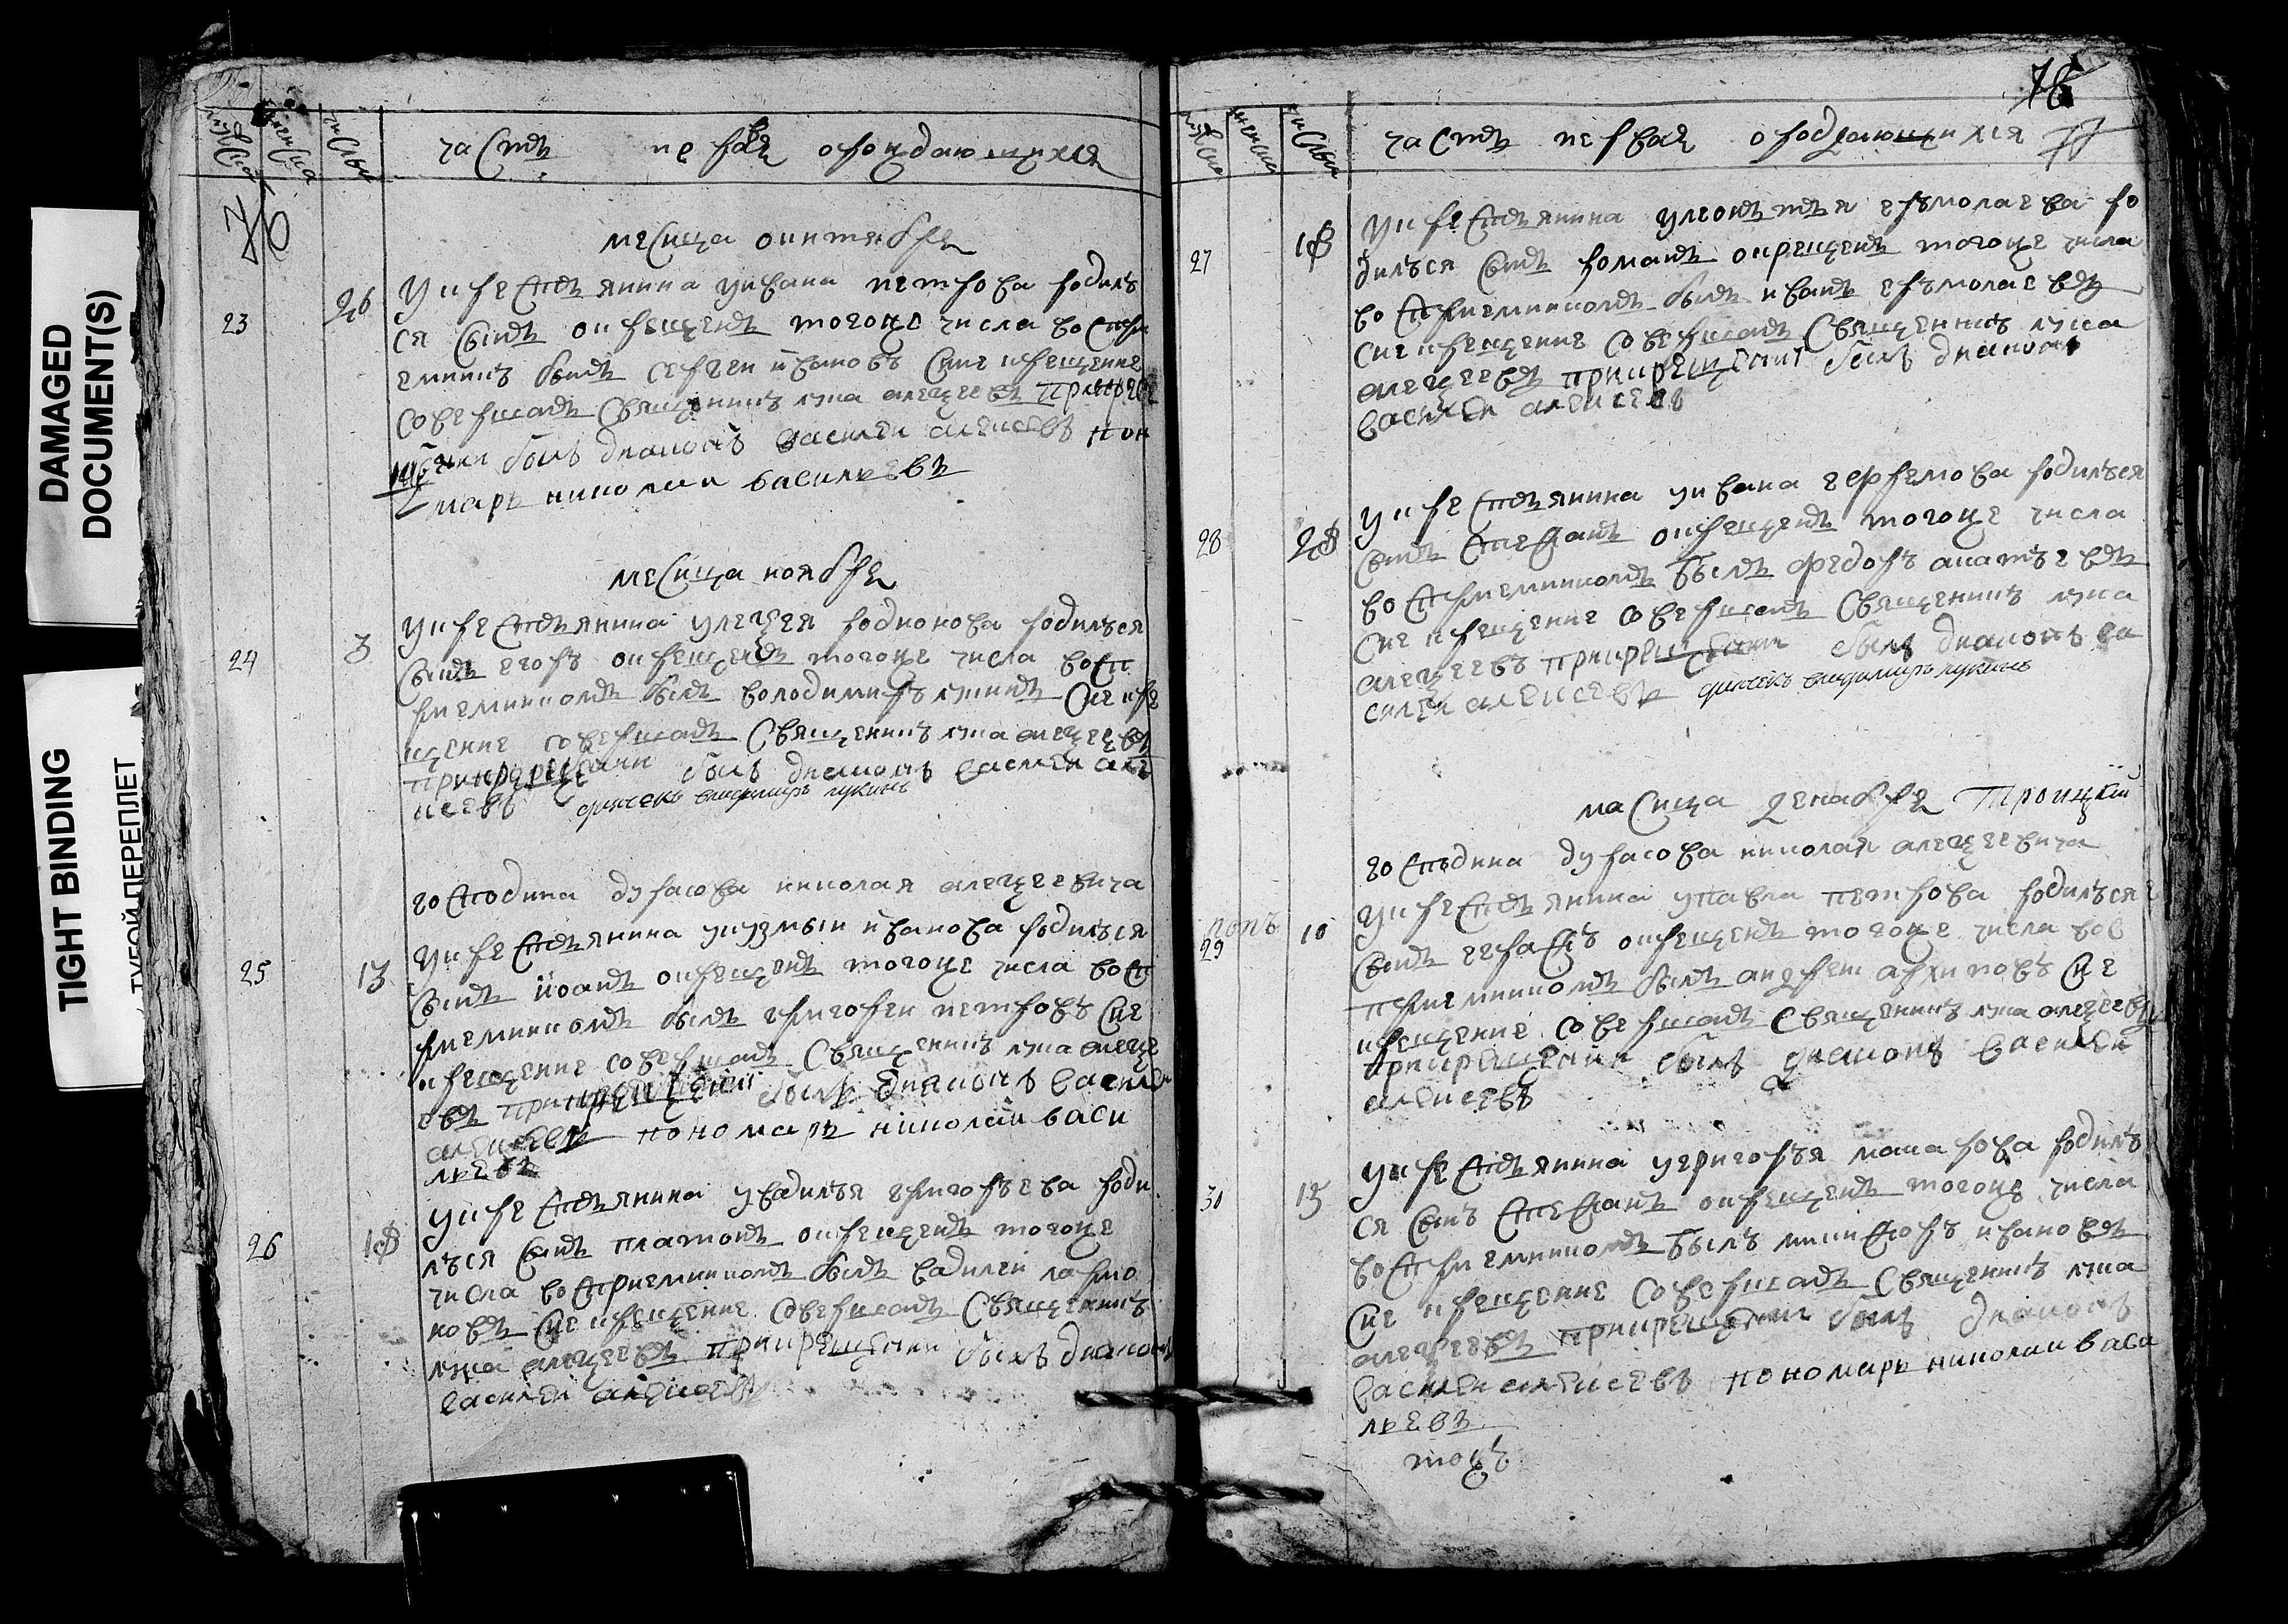 DAMAGED
DOCUMENT(S)
TIGHT BINDING
ТУГОЙ ПЕРЕПЛЕТ
числы
часть первая о рождающихся
76
месяца октября
23
26
У крестьянина у ивана петрова родилъ
ся сынъ окрещенъ тогоже числа воспри
емникъ былъ сергеи ивановъ сие крещение
совершалъ священникъ лука алеѯеевъ прикре
щении былъ диаконъ василеи алексеевъ пон
марь николаи васильевъ
месяца ноября
24
3
У крестьянина у алеѯея родионова родилъся
сынъ егоръ окрещенъ тогоже числа восп
риемникомъ былъ володимиръ лукинъ сие кре
щение совершалъ священникъ лука алеѯеевъ
прикрещении былъ диаконъ василеи але
ксеевъ дячекъ владимиръ лукинъ
господина дурасова николая алеѯеевича
25
13
У крестьянина у кузмы иванова родилъся
сынъ иоанъ окрещенъ тогоже числа восп
риемникомъ былъ григореи петровъ сие
крещение совершалъ священникъ лука алеѯе
евъ прикрещении былъ диаконъ василеи
алексеевъ пономарь николаи васи
льевъ
26
18
У крестьянина у вадилья григорьева роди
лъся сынъ платонъ окрещенъ тогоже
числа восприемникомъ былъ вадилеи ларио
новъ сие крещение совершалъ священникъ
лука алеѯеевъ прикрещении былъ диаконъ
василеи алексеевъ
78
77
числы
часть первая о раждающихся
27
18
У крестьянина у леонтья ермолаева ро
дилъся сынъ романъ окрещенъ тогоже числа
восприемникомъ былъ иванъ ермолаевъ
сие крещение совершалъ священникъ лука
алеѯеевъ прикрещении былъ диаконъ
василеи алексеевъ
28
28
У крестьянина у ивана ефремова родилъся
сынъ стефанъ окрещенъ тогоже числа
восприемникомъ былъ федоръ акатьевъ
сие крещение совершалъ священникъ лука
алеѯеевъ прикрещении былъ диаконъ ва
силеи алексеевъ дячекъ владимиръ лукинъ
масица декабря Троицкїй
господина дурасова николая алеѯеевича
попъ
29
10
У крестьянина у павла петрова родилъся
сынъ герасїмъ окрещенъ тогоже числа вос
приемникомъ былъ андреи архиповъ сие
крещение совершалъ священникъ лука алеѯеевъ
прикрещении былъ диаконъ василеи
алексеевъ
30
15
У крестьянина у григорья макарова родилъ
ся сынъ стефанъ окрещенъ тогоже числа
восприемникомъ былъ никифоръ ивановъ
сие крещение совершалъ священникъ лука
алеѯеевъ прикрещении былъ диаконъ
василеи алексеевъ пономарь николаи васи
льевъ
тожъ